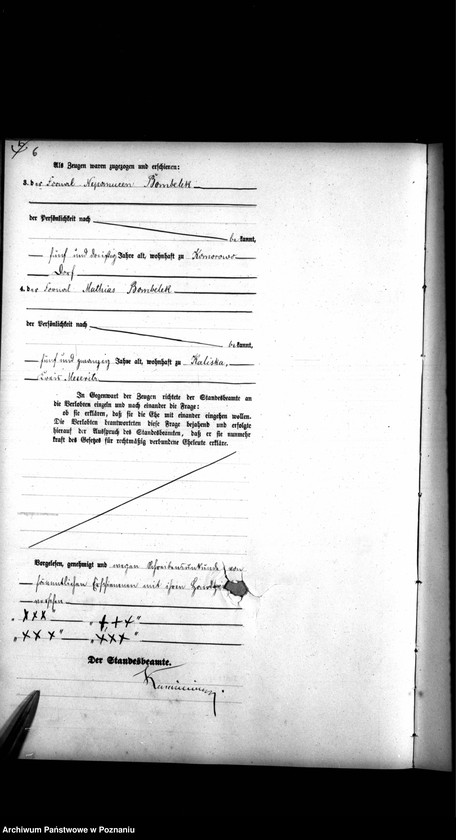 6
Als Zeugen waren zugezogen und erschienen:
3. der Fornal Nepomucen Bombelek
der Persönlichkeit nach
be kannt,
fünf und dreißig Jahre alt, wohnhaft zu Komorowo
Dorf
4. der Fornal Mathias Bombelek
der Persönlichkeit nach
be kannt,
fünf und zwanzig Jahre alt, wohnhaft zu Kaliska,
Kreis
In Gegenwart der Zeugen richtete der Standesbeamte an
die Verlobten einzeln und nach einander die Frage:
ob sie erklären, daß sie die Ehe mit einander eingehen wollen.
Die Verlobten beantworteten diese Frage bejahend und erfolgte
hierauf der Ausspruch des Standesbeamten, daß er sie nunmehr
kraft des Gesetzes für rechtmäßig verbundene Eheleute erkläre.
Vorgelesen, genehmigt und wegen Schreibensunkunde von
sämmtlichen Erschienenen mit ihren
versehen
„ XXX " „ +++ "
„ XXX " „ XXX "
Der Standesbeamte.
Archiwum Państwowe w Poznaniu